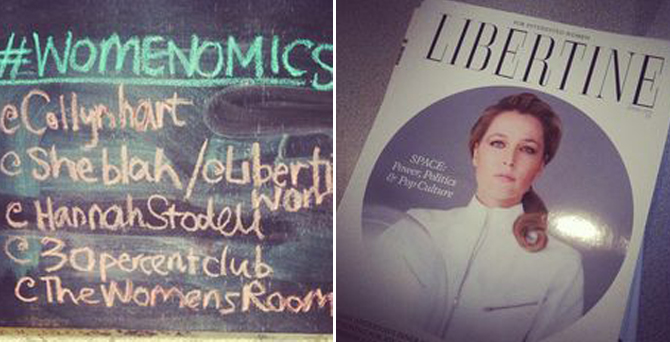 #WOMENOMICS
@Collynhart
@Sheblah/@Liberti
Wom
@HannahStodell
@30percentclub
@TheWomensRoom
FOR INTERESTED WOMEN
LIBERTINE
SPACE:
Power, Politics
& Pop Culture